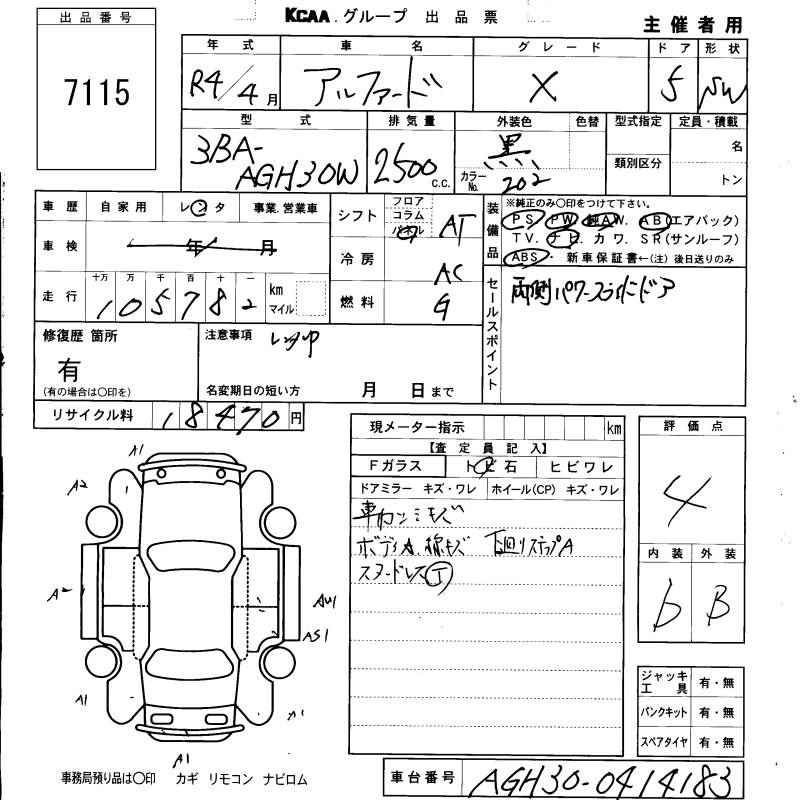 KCAA.グループ 出品票
主催者用
出品番号
7115
年式 車名 グレード ドア 形状
R4/4月 アルファード X 5
型式 排気量 外装色 色替 型式指定 定員・積載
3BA-AGH30W 2500 C.C. 黒 カラーNo. 202 類別区分 名 トン
車歴 自家用 レンタ 事業.営業車
車検 年 月
走行 十万 万 千 百 十 一
105782 km マイル
シフト フロア コラム パネル AT
冷房 AC
燃料 G
装備品 ※純正のみ〇印をつけて下さい。
PS PW 純AW. AB(エアバック)
TV. ナビ カワ. SR(サンルーフ)
ABS・ 新車保証書←(注) 後日送りのみ
セールスポイント 両側パワースライドドア
修復歴 箇所
有
(有の場合は〇印を)
注意事項 レンタUP
名変期日の短い方 月 日まで
リサイクル料 18470円
現メーター指示 km
【査定員記入】
Fガラス トビ石 ヒビワレ
ドアミラー キズ・ワレ ホイール(CP) キズ・ワレ
ボディ
スタッドレス
評価点
4
内装 外装
b B
A1
A2
A2
AW1
AS1
A1
A1
A1
ジャッキ工具 有・無
パンクキット 有・無
スペアタイヤ 有・無
事務局預り品は〇印 カギ リモコン ナビロム
車台番号 AGH30-0414183